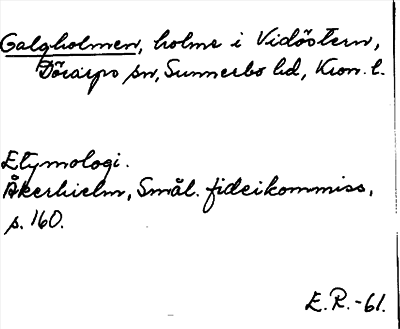 Galgholmen, holme i Vidöstern,
Dörarps sn, Sunnerbo hd, Kron. l.
Etymologi.
Åkerhielm, Smål. fideikommiss,
s. 160.
E.R.-61.